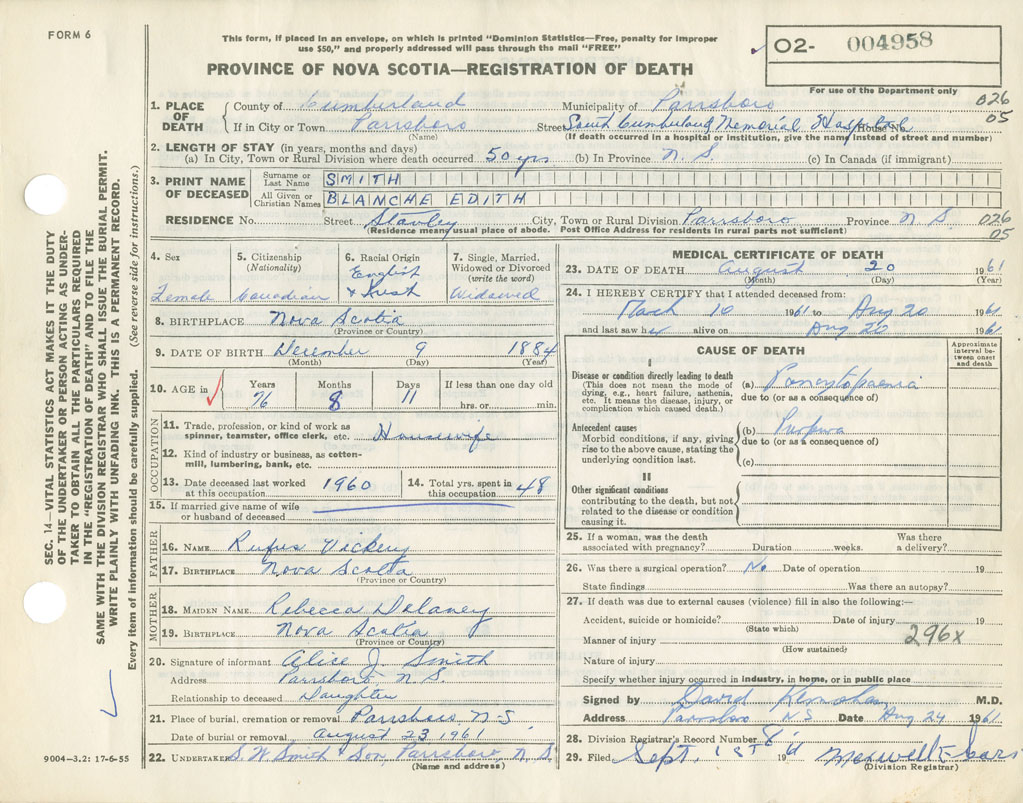 FORM 6
This form, if placed in an envelope, on which is printed "Dominion Statistics—Free, penalty for improper
use $50," and properly addressed will pass through the mail "FREE"
PROVINCE OF NOVA SCOTIA—REGISTRATION OF DEATH
02- 004958
For use of the Department only
1. PLACE OF DEATH County of Cumberland Municipality of Parrsboro 026
If in City or Town Parrsboro Street South Cumberland Memorial Hospital House No. 05
(Name) (If death occurred in a hospital or institution, give the name instead of street and number)
2. LENGTH OF STAY (in years, months and days)
(a) In City, Town or Rural Division where death occurred 50 yrs (b) In Province N.S. (c) In Canada (if immigrant)
3. PRINT NAME OF DECEASED Surname or Last Name SMITH
All Given or Christian Names BLANCHE EDITH
RESIDENCE No. Street City, Town or Rural Division Parrsboro Province N S 026
(Residence means usual place of abode. Post Office Address for residents in rural parts not sufficient) 05
4. Sex Female
5. Citizenship (Nationality) Canadian
6. Racial Origin English &
7. Single, Married, Widowed or Divorced (write the word) Widowed
8. BIRTHPLACE Nova Scotia
(Province or Country)
9. DATE OF BIRTH December 9 1884
(Month) (Day) (Year)
10. AGE in Years Months Days If less than one day old
76 8 11 hrs. or min.
OCCUPATION
11. Trade, profession, or kind of work as spinner, teamster, office clerk, etc. Housewife
12. Kind of industry or business, as cotton-mill, lumbering, bank, etc.
13. Date deceased last worked at this occupation 1960 14. Total yrs. spent in this occupation 48
15. If married give name of wife or husband of deceased
FATHER
16. NAME Rufus Vickery
17. BIRTHPLACE Nova Scotia
(Province or Country)
MOTHER
18. MAIDEN NAME Rebecca Delaney
19. BIRTHPLACE Nova Scotia
(Province or Country)
20. Signature of informant Alise J. Smith
Address Parrsboro, N.S.
Relationship to deceased Daughter
21. Place of burial, cremation or removal Parrsboro, N.S.
Date of burial or removal August 23 1961
22. UNDERTAKER S. W. Smith & Son, Parrsboro, N.S.
(Name and address)
MEDICAL CERTIFICATE OF DEATH
23. DATE OF DEATH August 20 1961
(Month) (Day) (Year)
24. I HEREBY CERTIFY that I attended deceased from:
March 10 1961 to Aug 20 1961
and last saw her alive on Aug 20 1961
CAUSE OF DEATH
Approximate interval between onset and death
I
Disease or condition directly leading to death
(This does not mean the mode of dying, e.g., heart failure, asthenia, etc. It means the disease, injury, or complication which caused death.)
(a)
due to (or as a consequence of)
Antecedent causes
Morbid conditions, if any, giving rise to the above cause, stating the underlying condition last.
(b) Purpura
due to (or as a consequence of)
(c)
II
Other significant conditions
contributing to the death, but not related to the disease or condition causing it.
25. If a woman, was the death associated with pregnancy? Duration weeks. Was there a delivery?
26. Was there a surgical operation? No Date of operation 19
State findings Was there an autopsy?
27. If death was due to external causes (violence) fill in also the following:—
Accident, suicide or homicide? Date of injury 19
(State which)
Manner of injury 296x
(How sustained)
Nature of injury
Specify whether injury occurred in industry, in home, or in public place
Signed by David M.D.
Address Parrsboro N S Date Aug 24 1961
28. Division Registrar's Record Number 8
29. Filed Sept. 1st 19
(Division Registrar)
SEC. 14—VITAL STATISTICS ACT MAKES IT THE DUTY
OF THE UNDERTAKER OR PERSON ACTING AS UNDER-
TAKER TO OBTAIN ALL THE PARTICULARS REQUIRED
IN THE "REGISTRATION OF DEATH" AND TO FILE THE
SAME WITH THE DIVISION REGISTRAR WHO SHALL ISSUE THE BURIAL PERMIT.
WRITE PLAINLY WITH UNFADING INK. THIS IS A PERMANENT RECORD.
Every item of information should be carefully supplied. (See reverse side for instructions.)
9004—3.2: 17-6-55